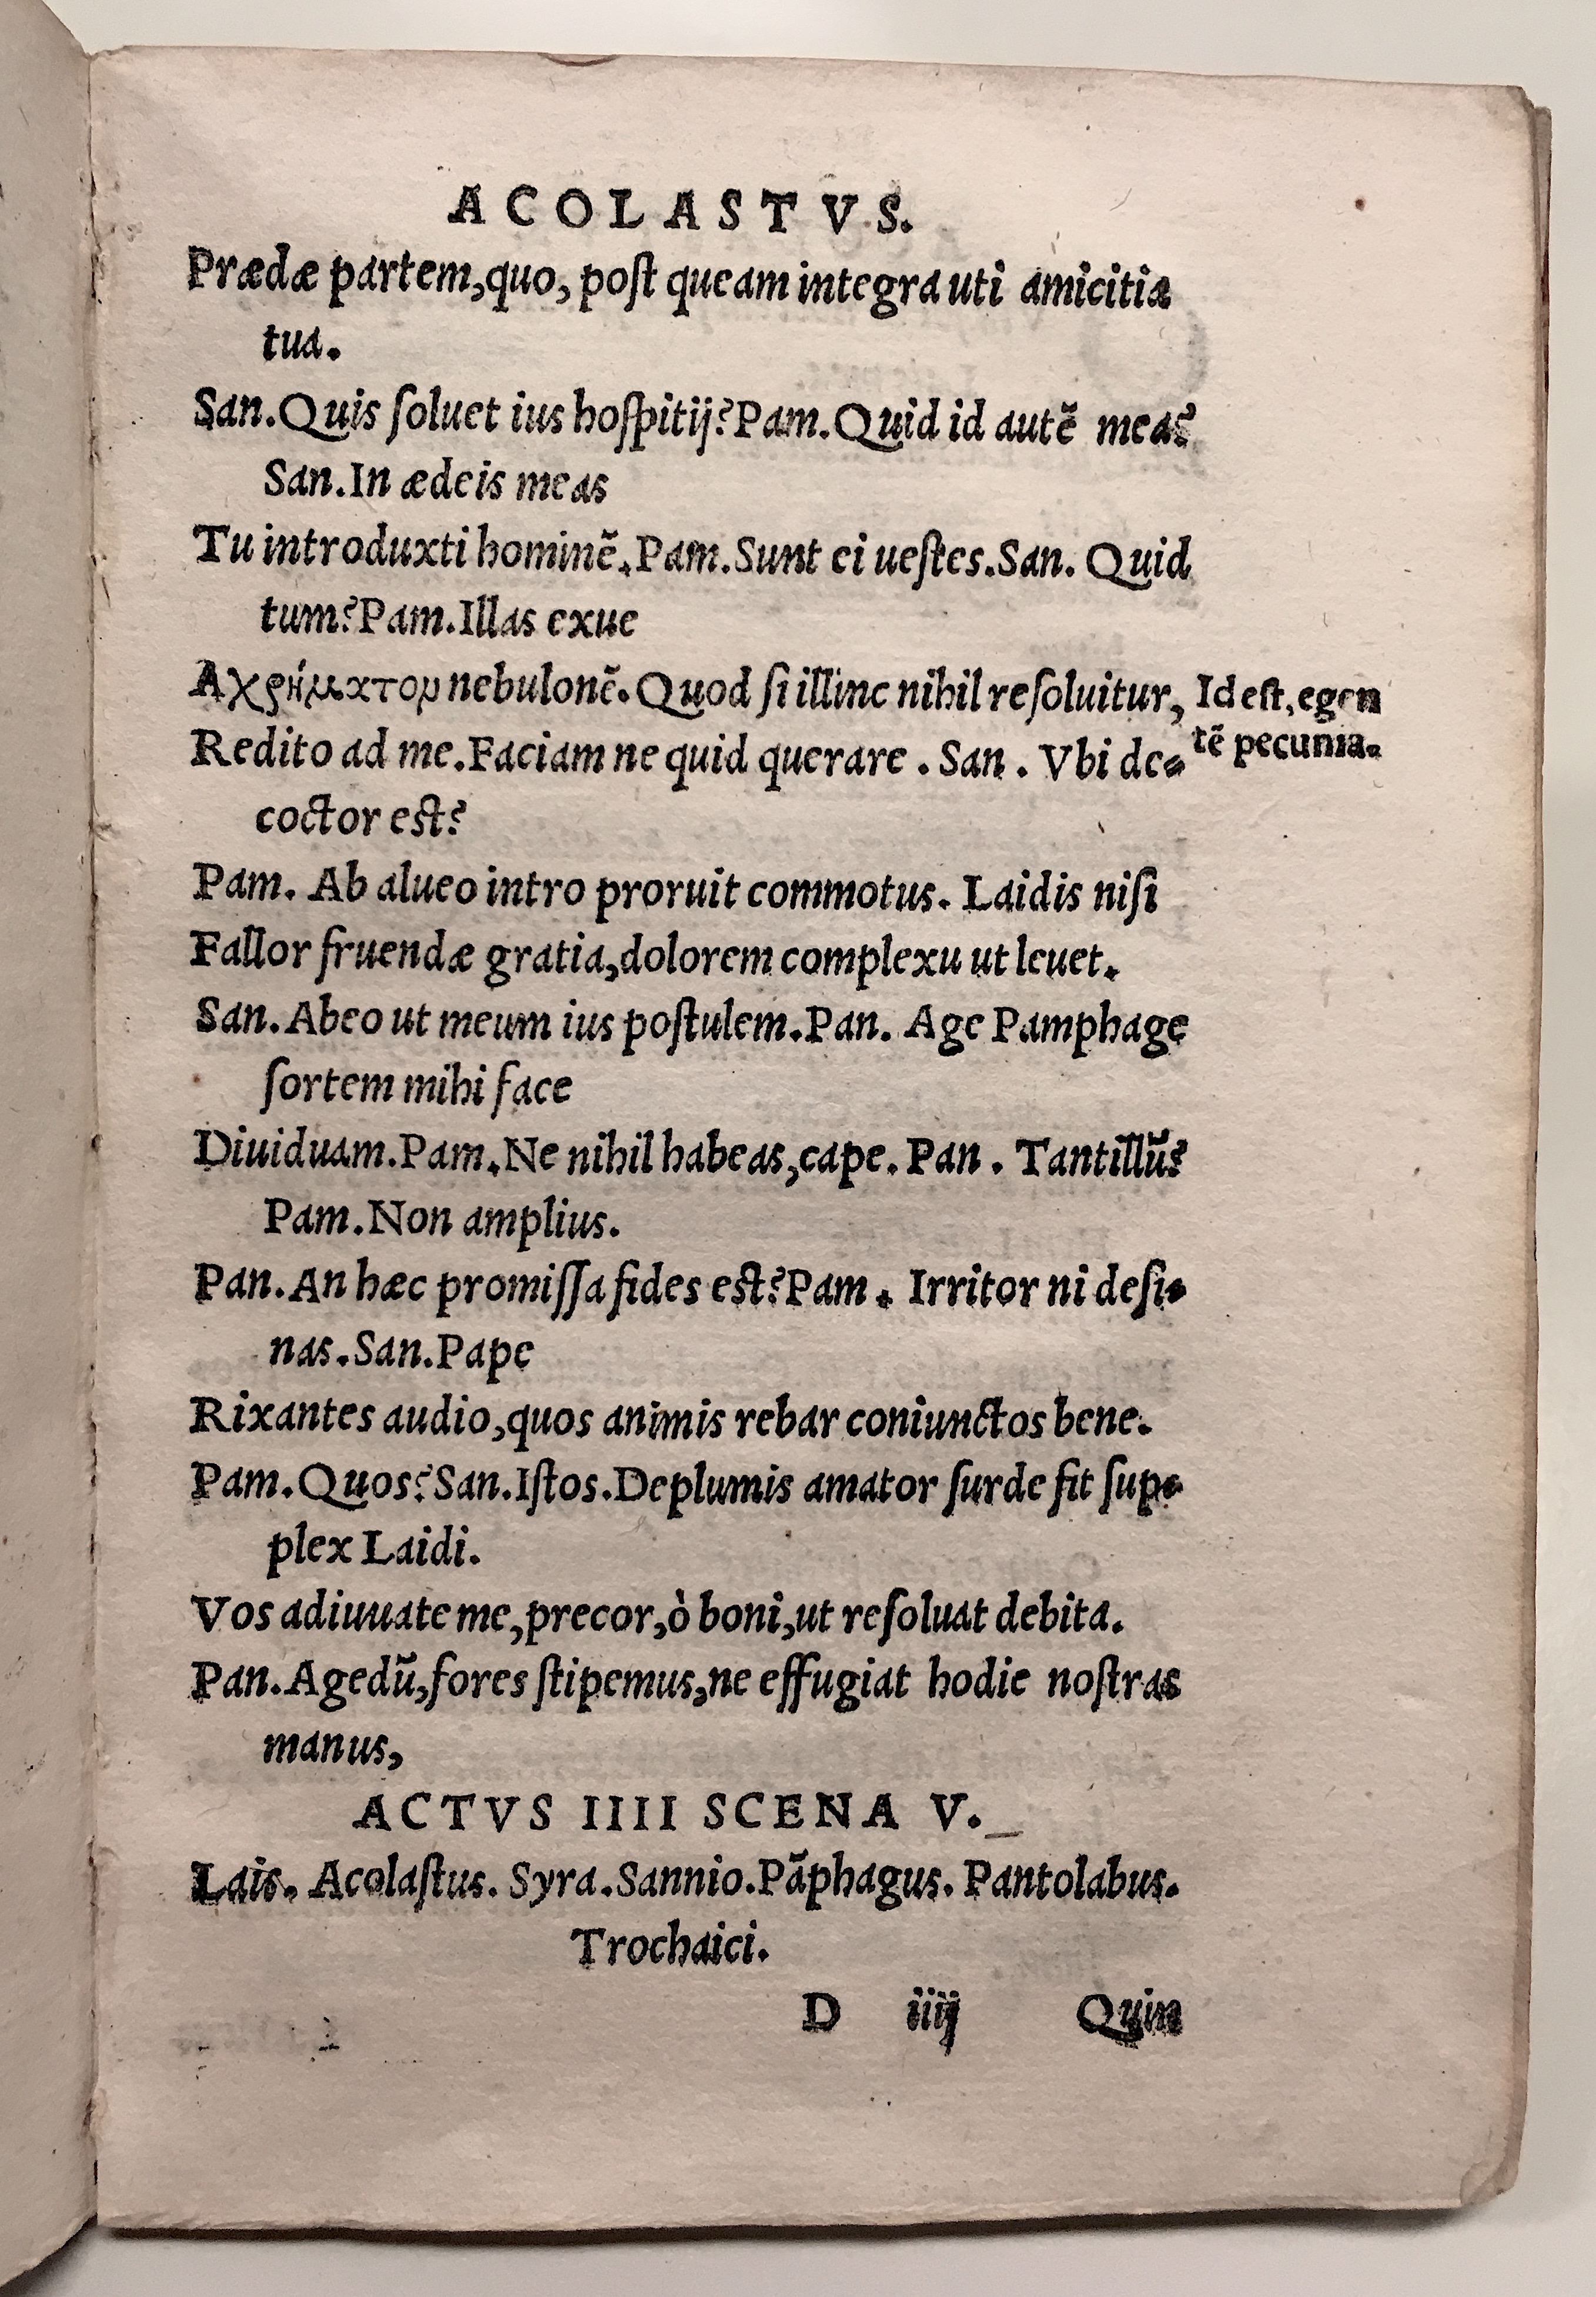 ACOLASTVS.
Prædæ partem,quo, poſt queam integra uti amicitia
tua.
San.Quis ſoluet ius hoſpitij?Pam.Quid id autē mea?
San.In ædeis meas
Tu introduxti hominē.Pam.Sunt ei ueſtes.San. Quid
tum?Pam.Illas exue
Αχρήματον nebulonē.Quod ſi illinc nihil reſoluitur,
Id eſt, egen
Redito ad me.Faciam ne quid querare . San . Vbi de=
tē pecunia.
coctor eſt?
Pam. Ab alueo intro proruit commotus. Laidis niſi
Fallor fruendæ gratia,dolorem complexu ut leuet.
San.Abeo ut meum ius poſtulem.Pan. Age Pamphage
ſortem mihi face
Diuiduam.Pam.Ne nihil habeas,cape. Pan . Tantillū?
Pam.Non amplius.
Pan.An hæc promiſſa fides eſt?Pam . Irritor ni deſi=
nas.San.Pape
Rixantes audio,quos animis rebar coniunctos bene.
Pam.Quos?San.Iſtos.Deplumis amator ſurde fit ſup=
plex Laidi.
Vos adiuuate me,precor,ò boni,ut reſoluat debita.
Pan.Agedū,fores ſtipemus,ne effugiat hodie noſtras
manus,
ACTVS IIII SCENA V.
Lais. Acolaſtus. Syra.Sannio.Pāphagus. Pantolabus.
Trochaici.
D iiij Quin